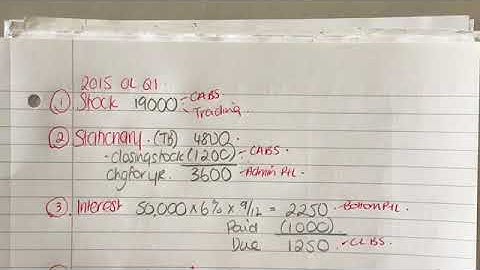 2015 OL Q1
① Stock 19000 - CABS
- Trading
② Stationary. (TB) 4800
- closing stock (1200) - CABS.
chg for yr. 3600 - Admin P+L
③ Interest 50,000 x 6% x 9/12 = 2250 - Bottom P+L.
Paid (1000)
Due 1250 - CLBS.